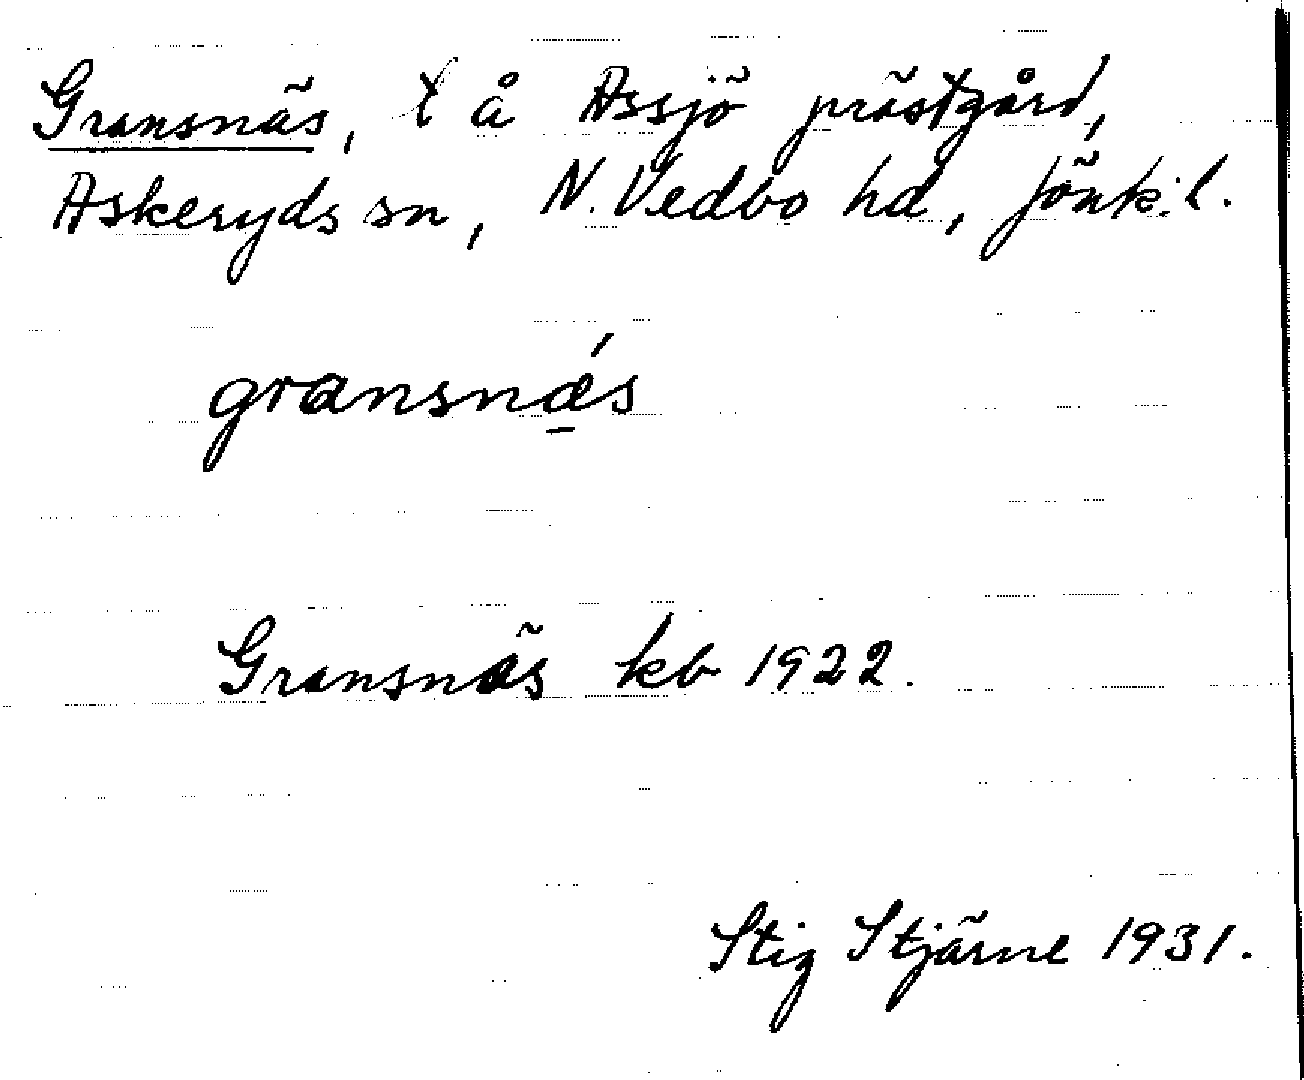 Gransnäs, t å Assjö prästgård,
Askeryds sn, N. Vedbo hd, Jönk. l.
gransnǽ̱s
Gransnäs kb 1922.
Stig Stjärne 1931.